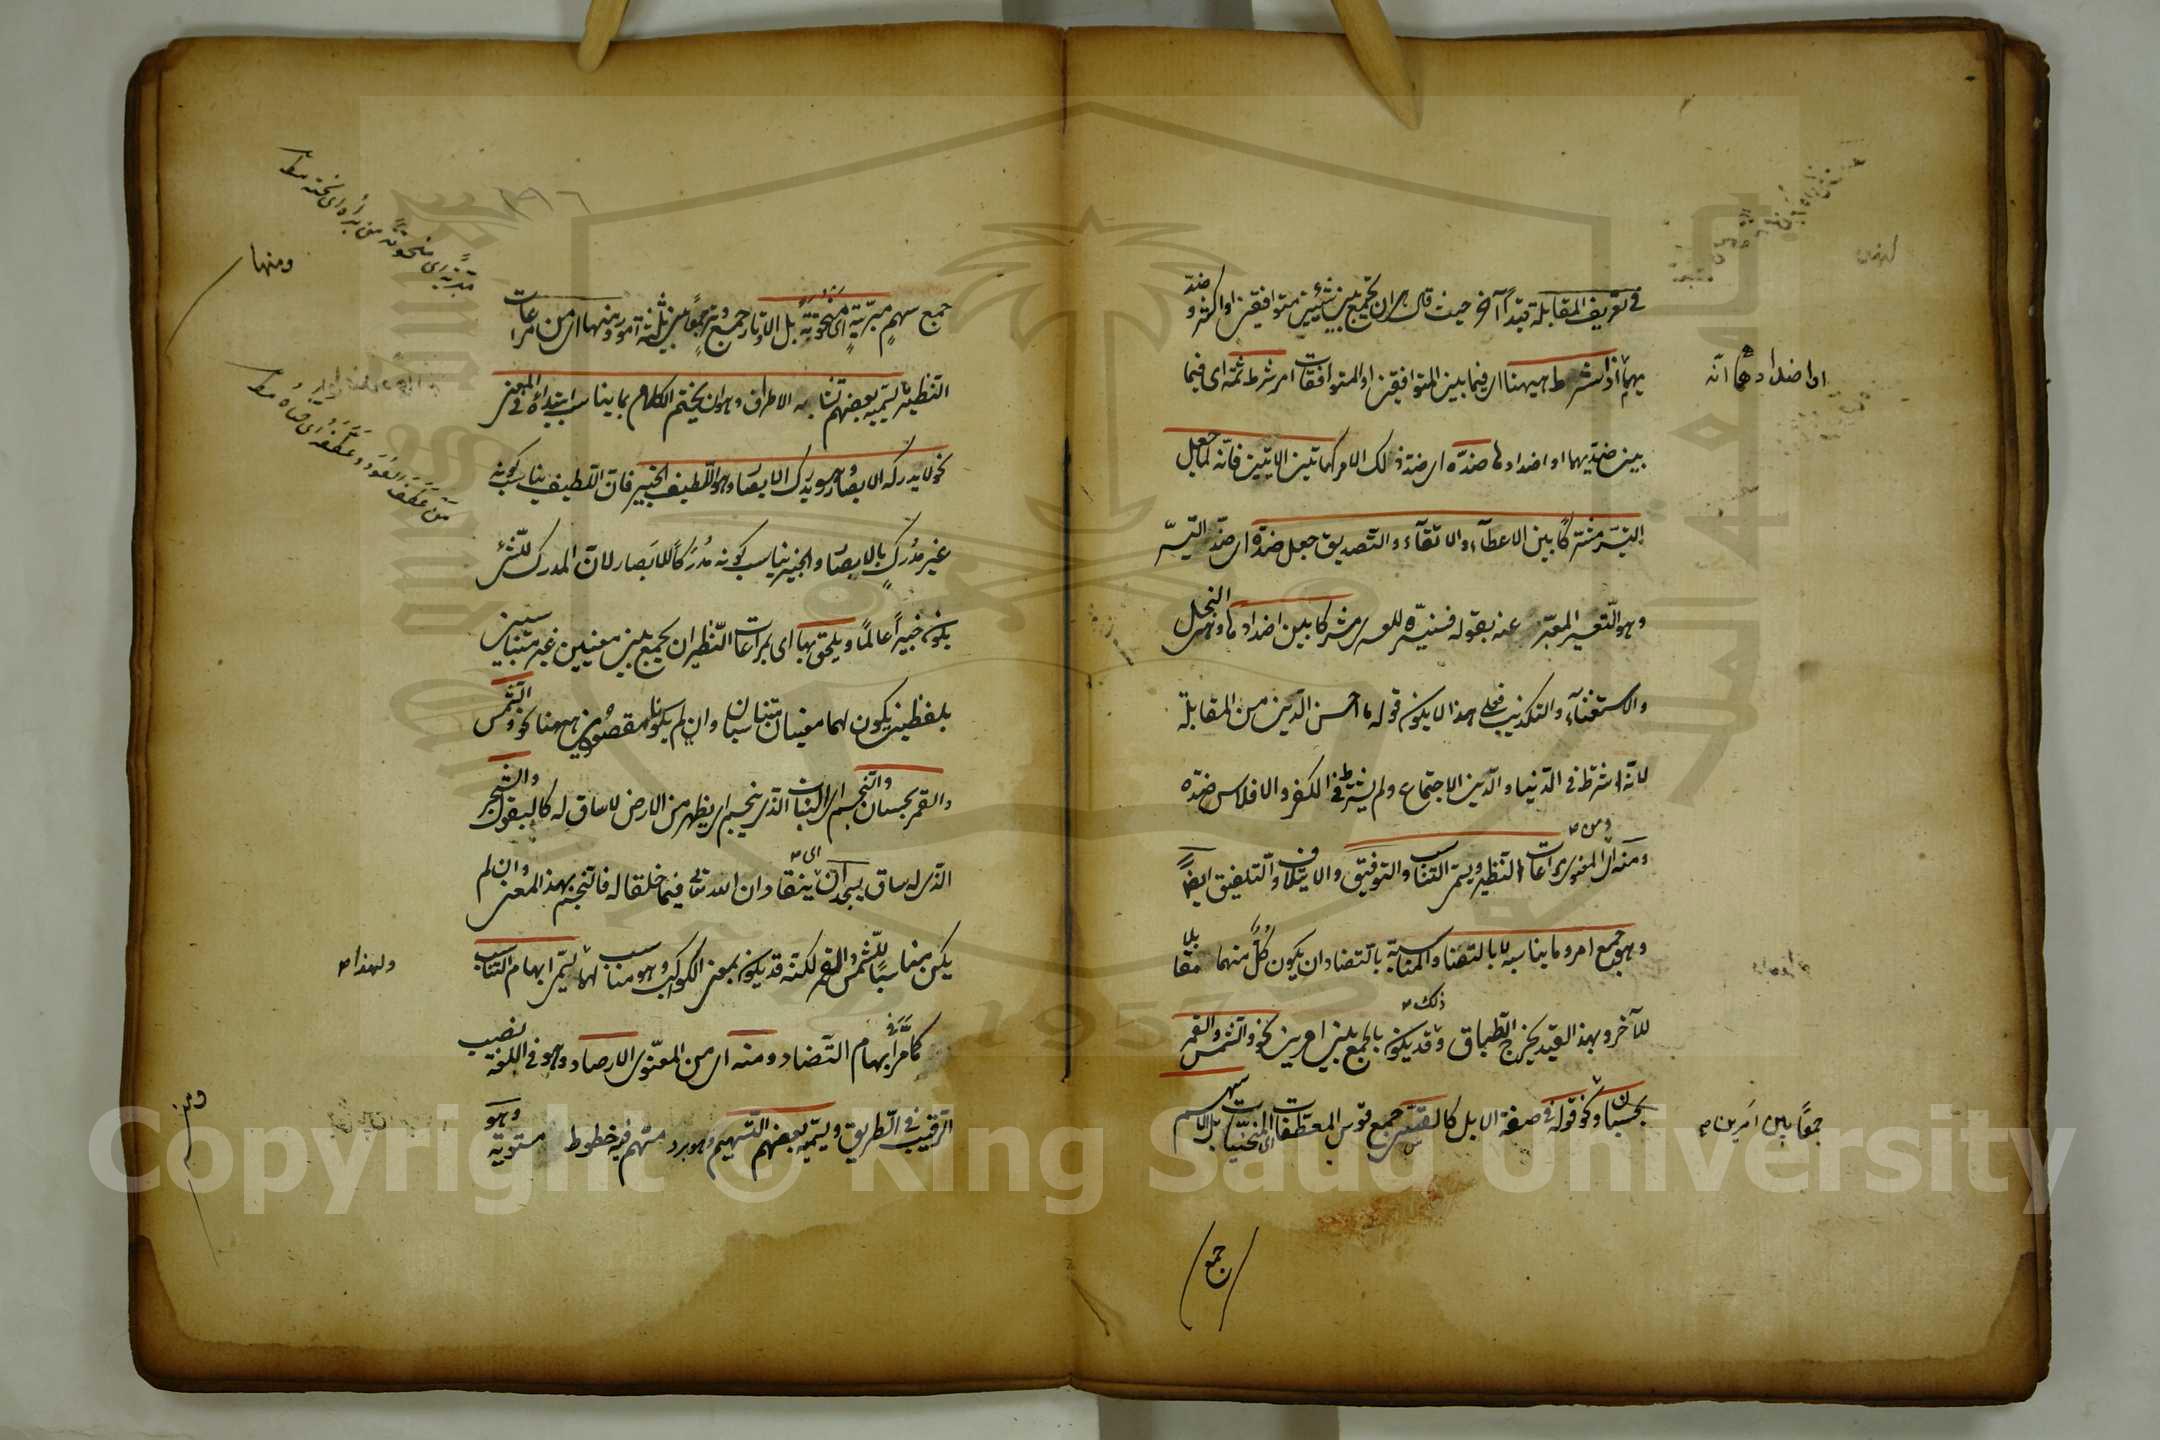 في تعريف المقابلة قيداً آخر حيث قال هي ان تجمع بين شيئين متوافقين او اكثر و ضدّ
يهما اذا شرط ههنا اي فيما بين المتوافقين او المتوافقات امر شرط ثمّه اي فيما
او اضدادهما انّه
بين ضدّيهما او اضدادها ضدّه اي ضدّ ذلك الامر كهاتين الآيتين فانّه لمّا جعل
التيسر مشتركاً بين الاعطآء والاتقآء والتصديق جعل ضدّه اي ضدّ التيسّر
وهو التعسر المعبّر عنه بقوله فسنيسّره للعسرى مشتركا بين اضدادها وهي البخل
والاستغنآء والتكذيب فعلى هذا لا يكون قوله ما احسن الدين من المقابلة
لانّه اشترط في الدنيا والدين الاجتماع ولم يشترط في الكفر والافلاس ضدّه
ومنه اي المعنوي مراعات النظير ويسمّى التناسب والتوفيق والايتلاف والتلفيق ايضاً
ومن
وهو جمع امر وما يناسبه لا بالتضاد والمناسبة بالتضاد ان يكون كلّ منهما مقابلا
للآخر وبهذا القيد يخرج الطباق وقد يكون بالجمع بين امرين نحو والشمس والقمر
ذلك
بحسبان ونحو قوله في صفة الابل كالقسيّ جمع قوس المعطفات اي المنحنيات بل الاسهم
جمعاً بين امرين
جمع
ومنها
جمع سهم مبريّة اي منحوتة بل الاوتار جمع وتر جمعاً بين ثلثة امور ومنها اي من مراعات
مبريّة اي منحوتة من براه اي نحته مط
النظير ما يسمّيه بعضهم تشابه الاطراف وهو ان يختم الكلام بما يناسب ابتداءه في المعنى
من عطف العود وعطّفه اي حناه مط
نحو لا يدركه الابصار وهو يدرك الابصار وهو اللطيف الخبير فان اللطيف يناسب كونه
غير مدرك بالابصار والخبير يناسب كونه مُدركاً للابصار لان المدرك للشئ
يكون خبيراً عالماً ويلحق بها اي بمراعات النظير ان يجمع بين معنيين غير متناسبين
بلفظين يكون لهما معنيان متناسبان وان لم يكونا مقصودين ههنا نحو والشمس
والقمر بحسبان والنجم اي النبات الذي ينجم اي يظهر من الارض لا ساق له كالبقول والشجر
الذي له ساق يسجدان ينقادان لله تعالى فيما خلقا له فالنجم بهذا المعنى وان لم
اي
يكن مناسباً للشمس والقمر لكنه قد يكون بمعنى الكوكب وهو مناسب لهما يسمّى ايهام التناسب
ولهذا
كما مرّ في ايهام التضاد ومنه اي من المعنوي الارصاد وهو في اللغة نصب
الرقيب في الطريق ويسمّيه بعضهم التسهيم وهو برد مسهّم فيه خطوط مستوية وهو